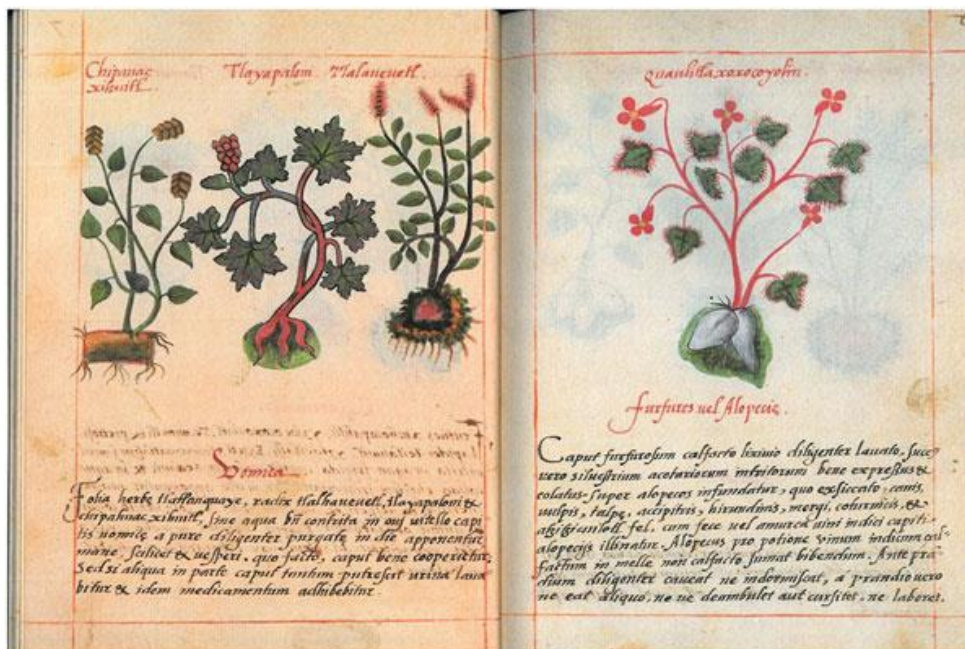 Chipauac
xihuitl.
Tlayapaloni.
Tlalaueuetl.
Vomica
Folia herbe tlatlanquaye, radix tlalhaueuetl, tlayapaloni &
chipahuac xihuitl, sine aqua bn̄ contrita in oui uitello capi
tis uomicę a pure diligenter purgatę in die apponentur
mane, scilicet & uesperi. quo facto, caput bene cooperietur.
Sed si aliqua in parte caput tantum putrescit urina laua
bitur & idem medicamentum adhibebitur.
Quauhtla xoxocoyolin.
furfures uel Alopecię.
Caput furfurosum calfacto lixiuio diligenter lauato, succ9
uero siluestrium acetariorum intritorum bene expressus &
colatus super alopecos infundatur, quo exsiccato, canis,
uulpis, talpę, accipitris, hirundinis, mergi, coturnicis, &
fel, cum fece uel amurca uini indici capiti
alopecijs illinatur. Alopecus pro potione uinum indicum cal-
factum in melle non calfacto sumat bibendum. Ante pra
dium diligenter caueat ne indormiscat, a prandio uero
ne eat aliquo, ne ue deambulet aut cursitet, ne laboret.